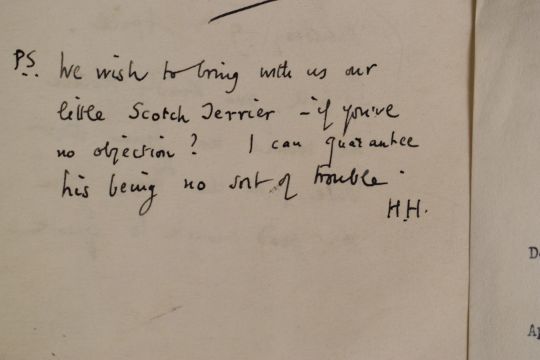 PS. We wish to bring with us our
little Scotch Terrier - if you've
no objection? I can guarantee
his being no sort of trouble.
H.H.
D
Ap